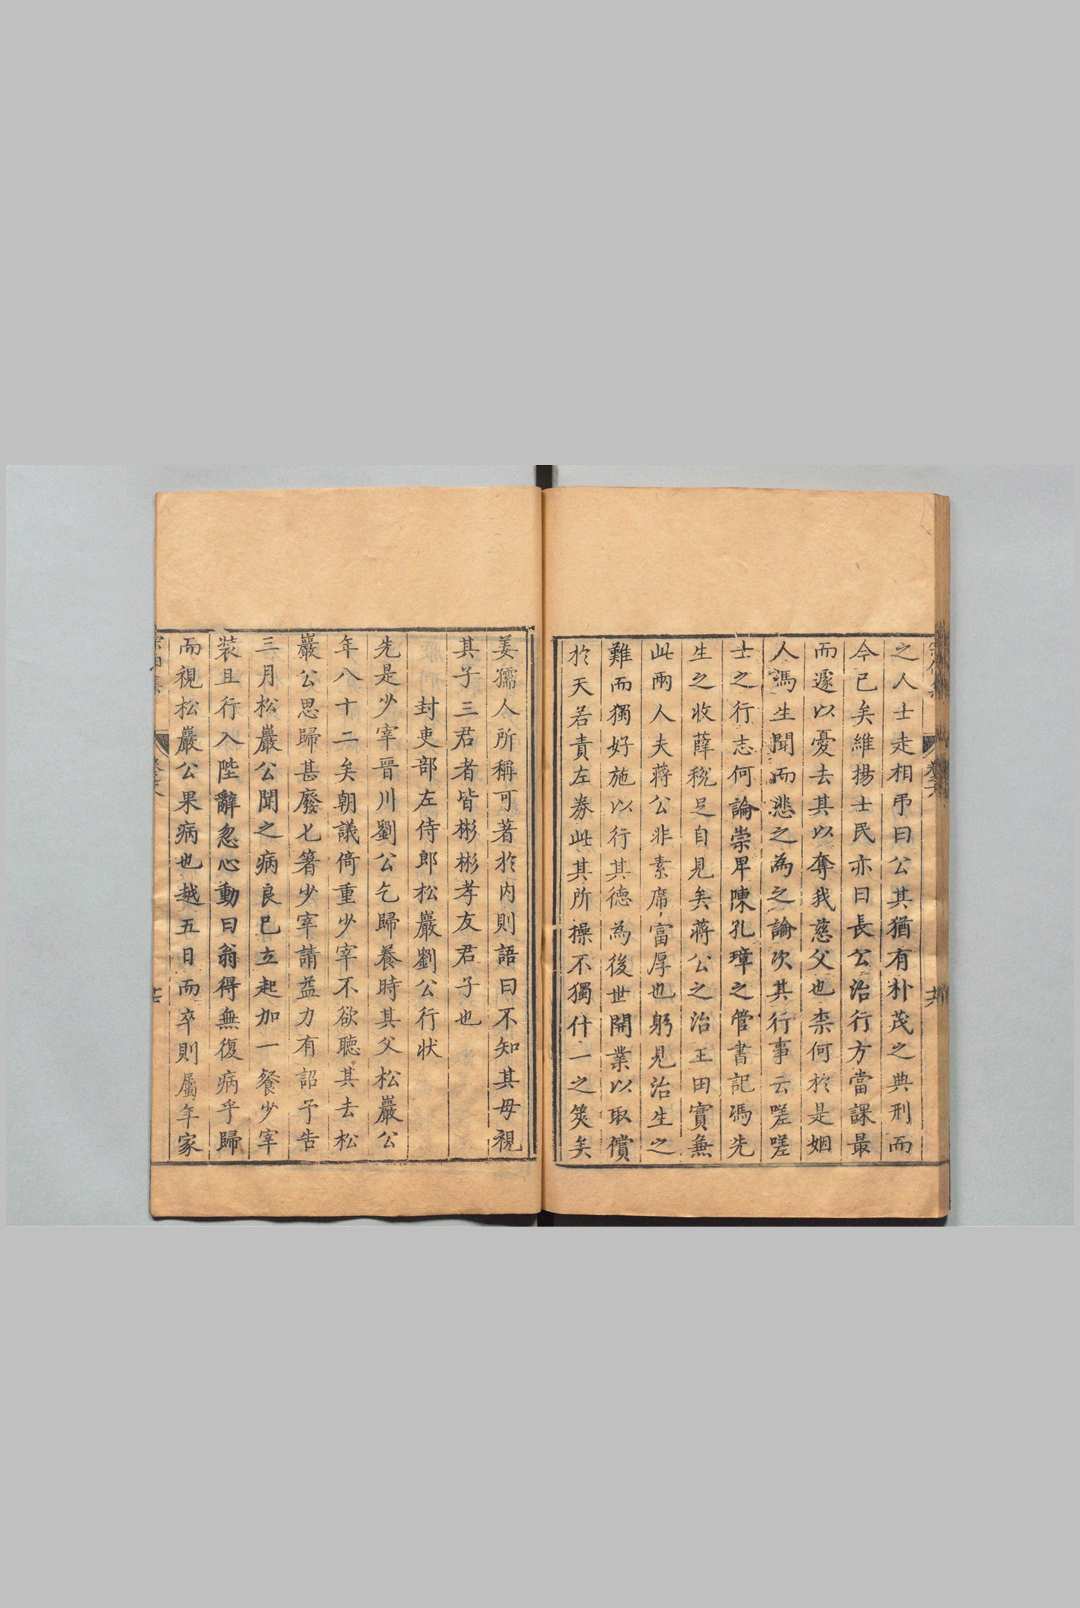 之人士走相弔曰公其猶有朴茂之典刑而
今已矣維揚士民亦曰長公治行方當課最
而遽以憂去其以奪我慈父也柰何於是姻
人馮生聞而悲之為之論次其行事云嗟嗟
士之行志何論崇卑陳孔璋之管書記馮先
生之收薛稅足自見矣蔣公之治玉田實無
此兩人夫蔣公非素席富厚也躬見治生之
難而獨好施以行其德為後世開業以取償
於天若責左劵此其所操不獨什一之筴矣
姜孺人所稱可著於內則語曰不知其母視
其子三君者皆彬彬孝友君子也
封吏部左侍郎松巖劉公行狀
先是少宰晉川劉公乞歸養時其父松巖公
年八十二矣朝議倚重少宰不欲聽其去松
巖公思歸甚廢匕箸少宰請益力有詔予告
三月松巖公聞之病良已立起加一餐少宰
裝且行入陛辭忽心動曰翁得無復病乎歸
而視松巖公果病也越五日而卒則屬年家